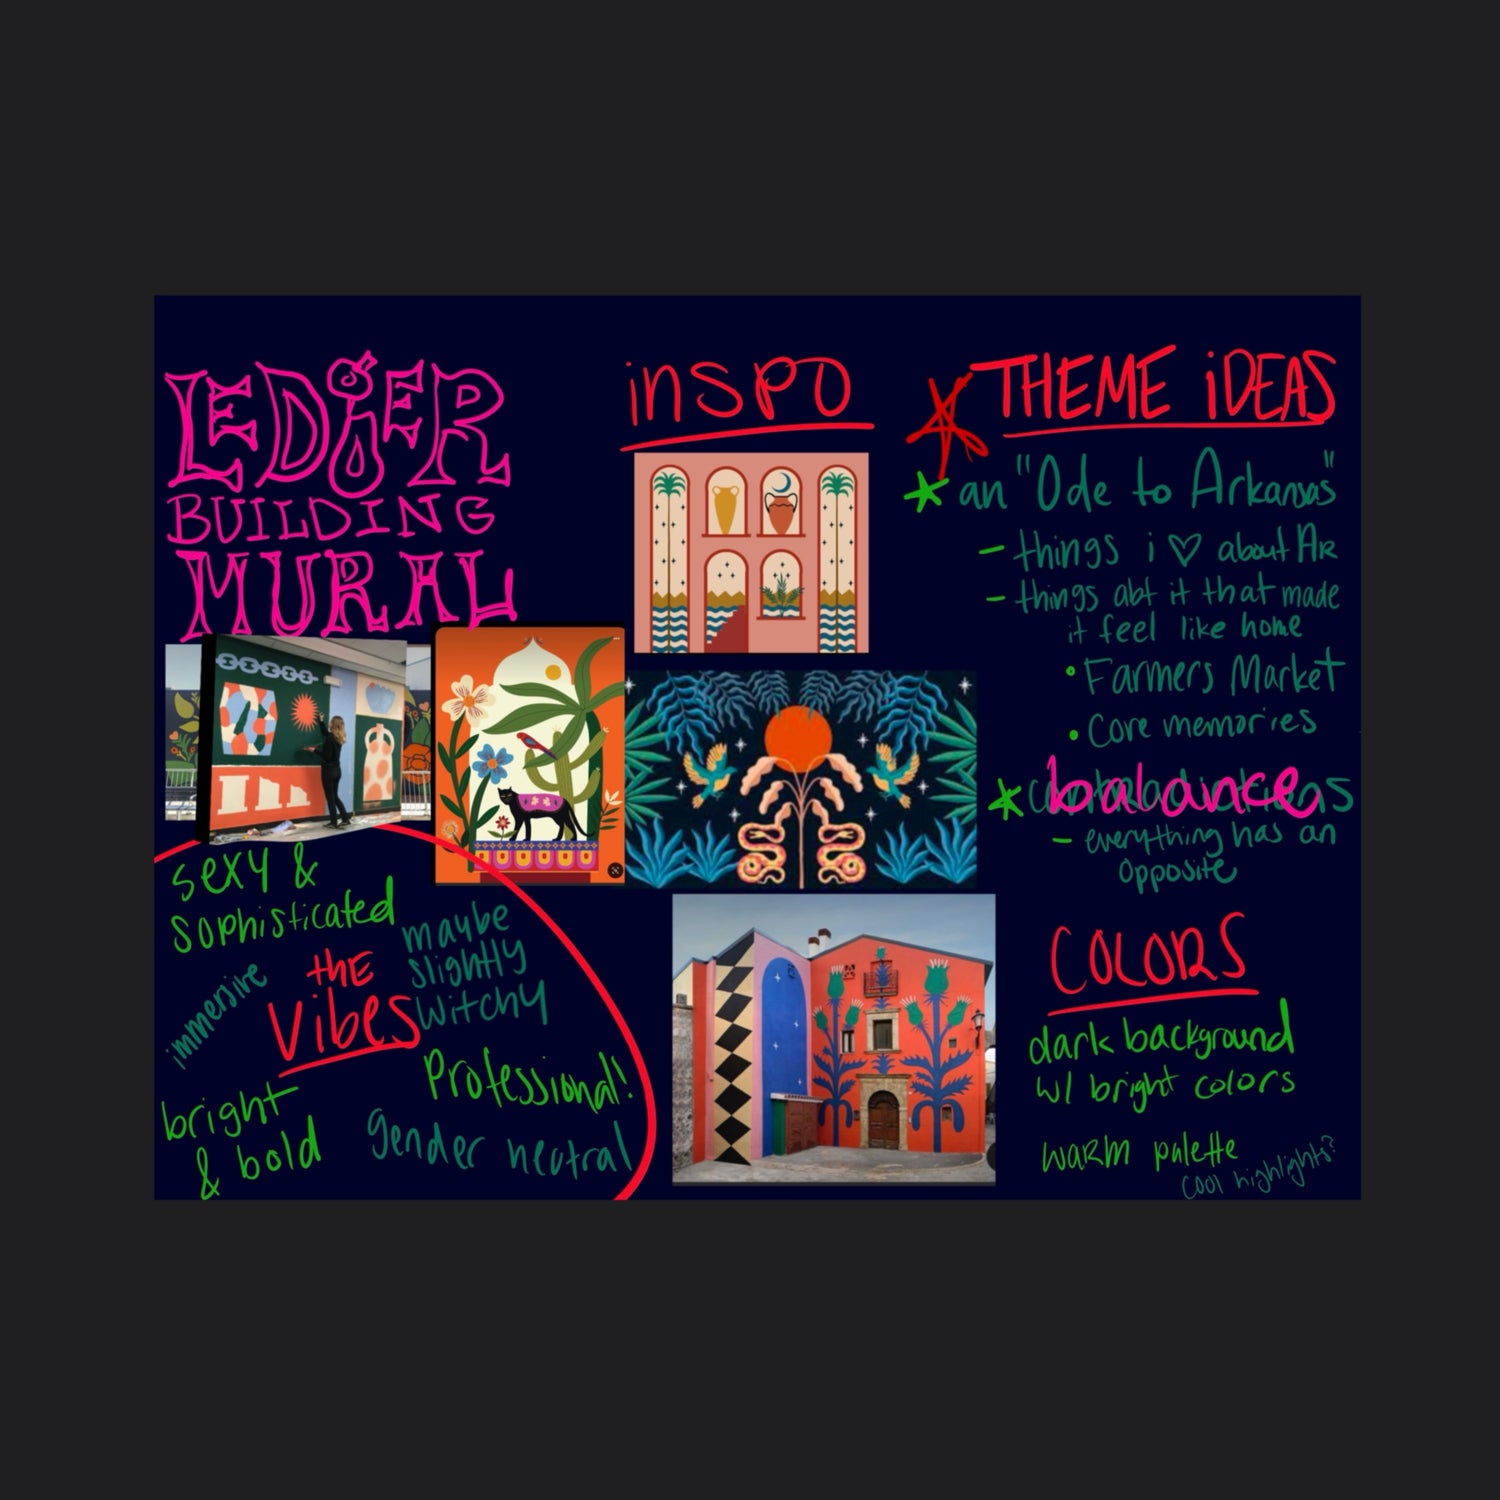 LEDGER
BUILDING
MURAL
inSPO
THEME iDEAS
an "Ode to Arkansas"
- things i ♡ about AR
- things abt it that made
it feel like home
• Farmers Market
• Core memories
balance
- everything has an
opposite
COLORS
dark background
w/ bright colors
warm palette
cool highlights?
sexy &
sophisticated
maybe
slightly
witchy
immersive
the
vibes
Professional!
bright
& bold
gender neutral